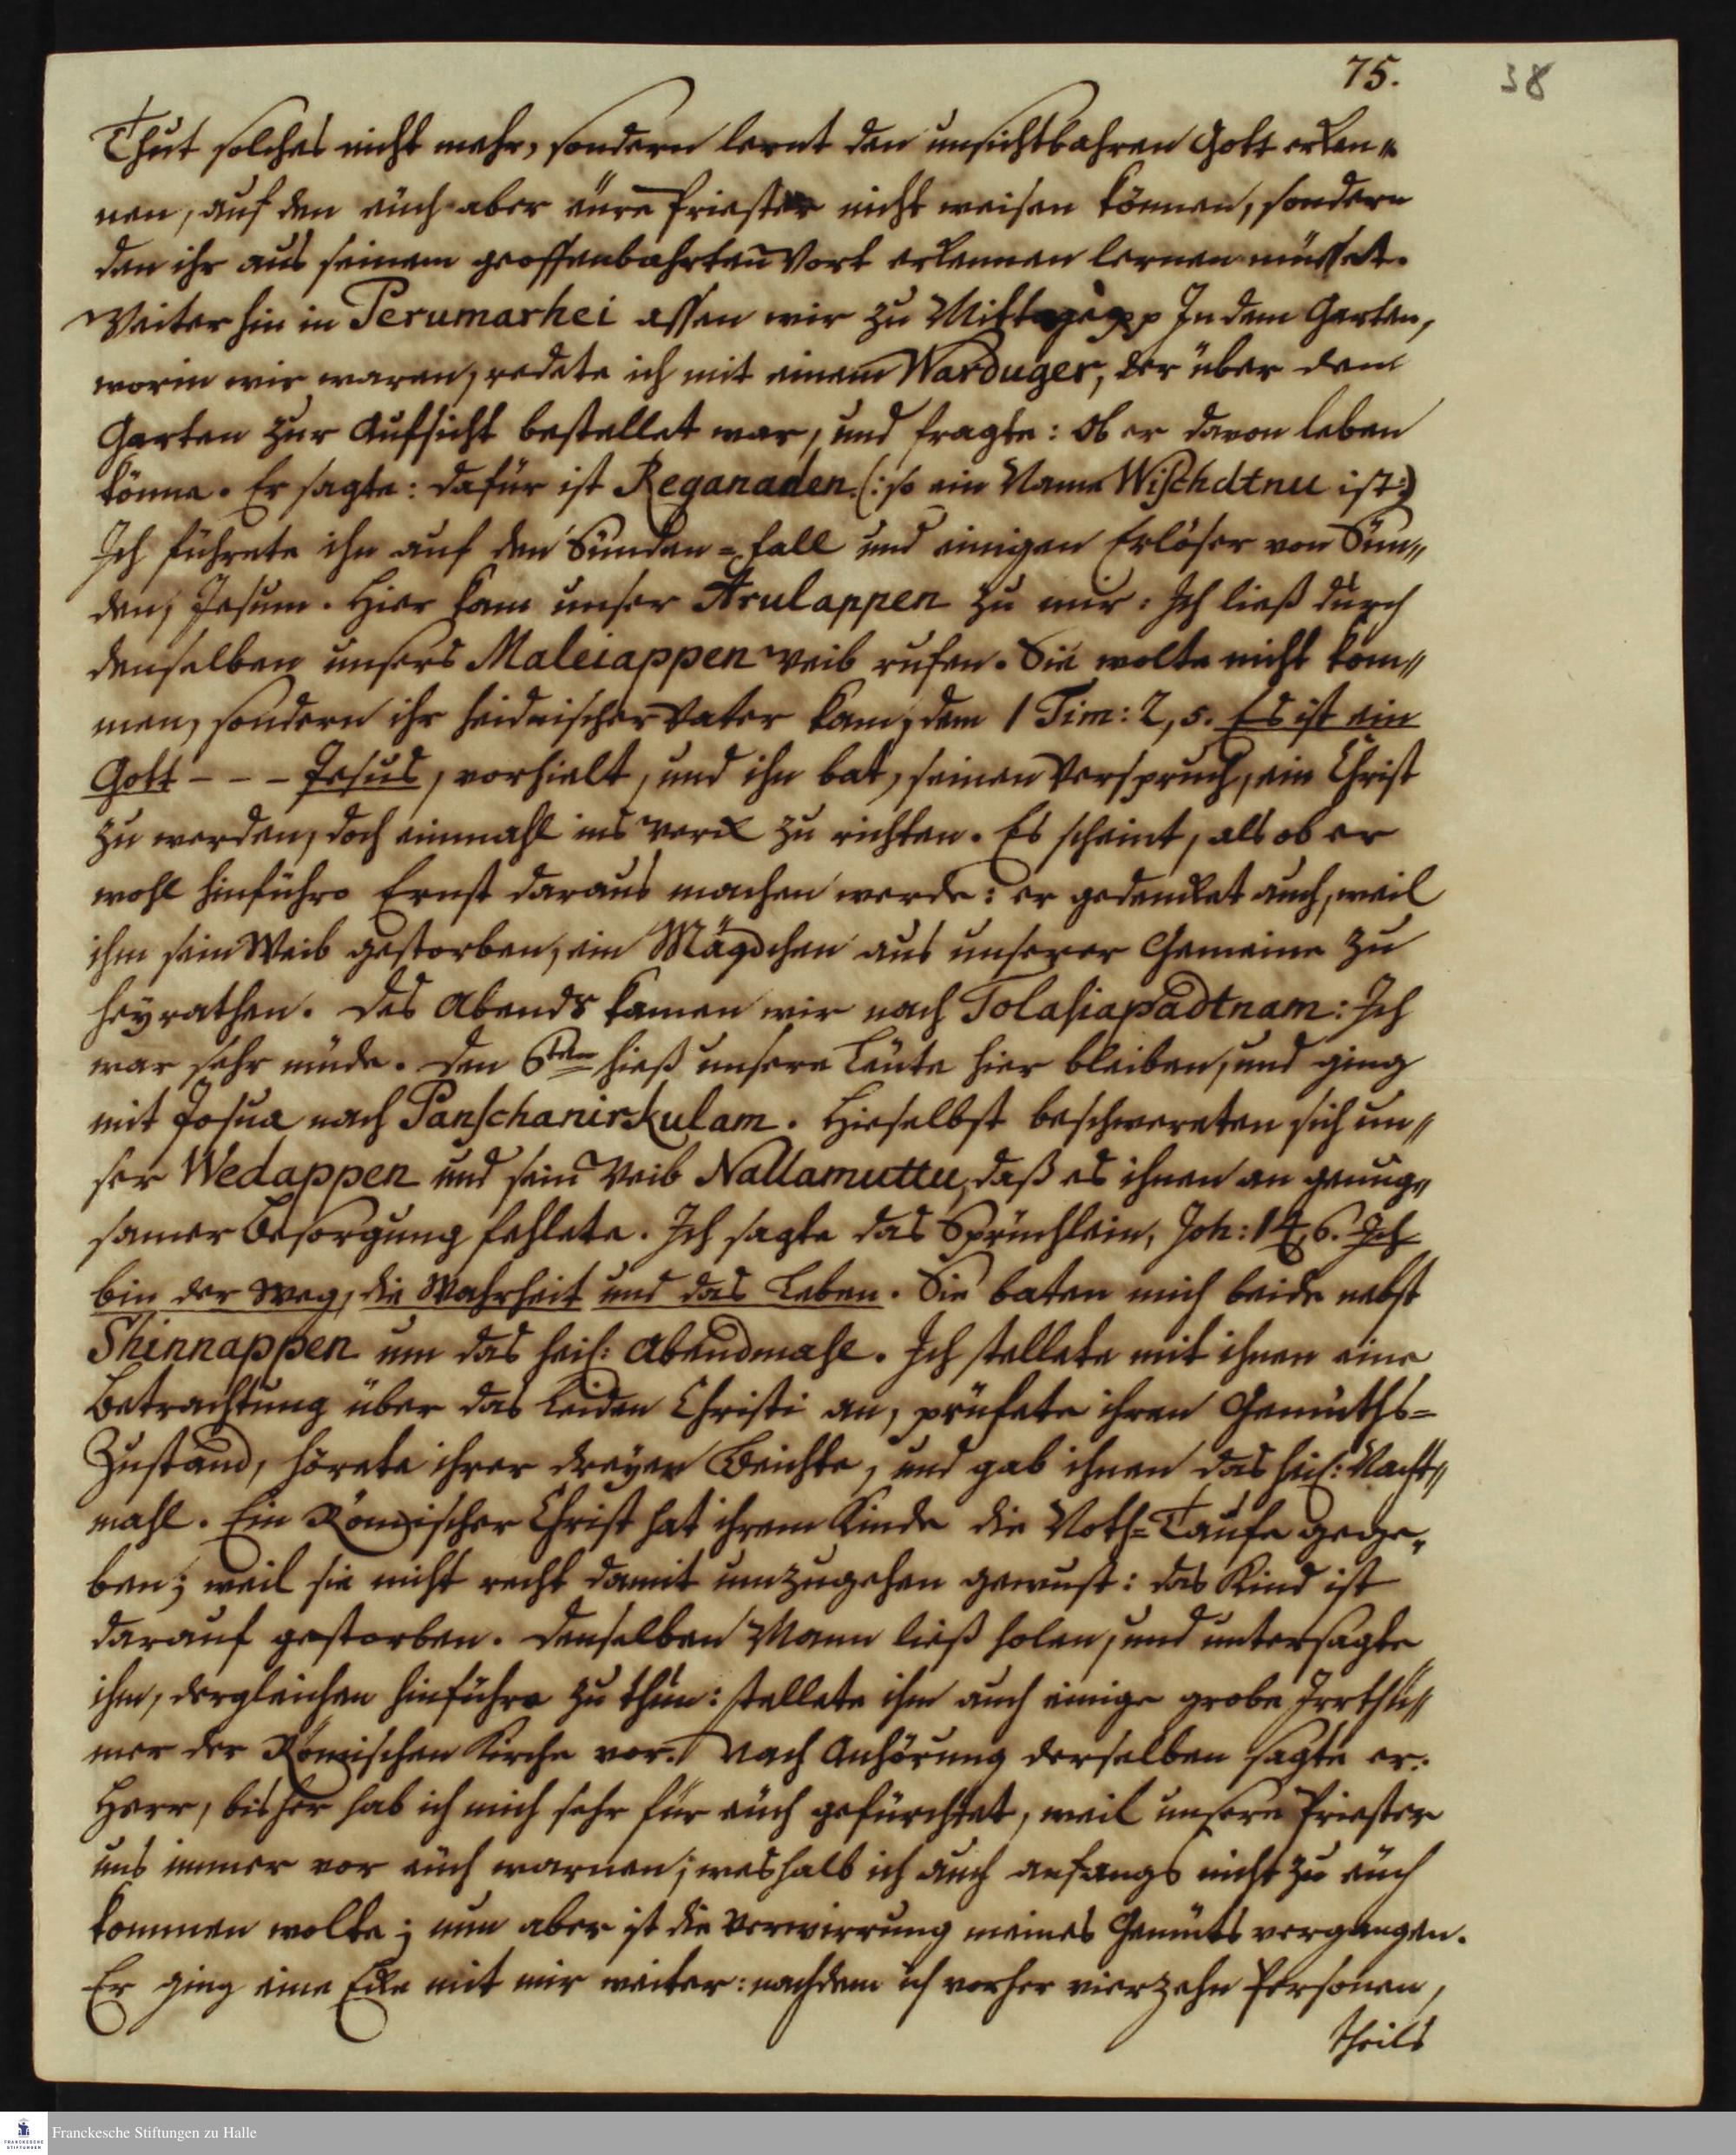 75.
38
Thut solches nicht mehr, sondern lernt den unsichtbahren Gott erken„
nen, auf den euch aber eüre Priester nicht weisen können, sondern
den ihr aus seinem geoffenbahrten Wort erkennen lernen müsset.
Weiterhin in Perumarhei assen wir zu Mittage In dem Garten,
worin wir waren, redete ich mit einem Warduger, der über dem
Garten zur Aufsicht bestellet war, und fragte: Ob er davon leben
könne. Er sagte: dafür ist Reganaden. (: so ein Name Wischdtnu ist:)
Ich führete ihn auf den Sünden=Fall und einigen Erlöser von Sün„
den, Jesum. Hier kam unser Arulappen zu mir: Ich ließ durch
denselben unsers Maleiappen Weib rufen. Sie wolte nicht kom„
men, sondern ihr heidnischer Vater kam, dem 1 Tim: 2, 5. Es ist ein
Gott - - - Jesus, vorhielt, und ihn bat, seinen Verspruch, ein Christ
zu werden, doch einmahl ins Werck zu richten. Es scheint, als ob er
wohl hinführo Ernst daraus machen werde: er gedencket auch, weil
ihm sein Weib gestorben, ein Mägdchen aus unserer Gemeine zu
heyrathen. Des Abends kamen wir nach Tolasiapadtnam: Ich
war sehr müde. Den 6ten hieß unsere Leüte hier bleiben, und ging
mit Josua nach Panschanirkulam. Hieselbst beschwereten sich un„
ser Wedappen und sein Weib Nallamuttu, daß es ihnen an genug„
samer Besorgung fehlete. Ich sagte das Sprüchlein, Joh: 14, 6. Ich
bin der Weg, die Wahrheit und das Leben. Sie baten mich beide nebst
Shinnappen um das heil: Abendmahl. Ich stellete mit ihnen eine
Betrachtung über das Leiden Christi an, prüfete ihren Gemüths=
Zustand, hörete ihrer dreyer Beichte, und gab ihnen das heil: Nacht„
mahl. Ein Römischer Christ hat ihrem Kinde die Noth=Taufe gege„
ben; weil sie nicht recht damit umzugehen gewust: das Kind ist
darauf gestorben. Denselben Mann ließ holen, und untersagte
ihm, dergleichen hinführo zu thun: stellete ihm auch einige grobe Irrthü„
mer der Römischen Kirche vor. Nach Anhörung derselben sagte er:
Herr, bisher hab ich mich sehr für eüch gefürchtet, weil unsere Priester
uns immer vor eüch warnen; weshalb ich auch anfangs nicht zu eüch
kommen wolte; nun aber ist die Verwirrung meines Gemüts vergangen.
Er ging eine Ecke mit mir weiter: nachdem ich vorher vierzehn Personen,
theils
Franckesche Stiftungen zu Halle